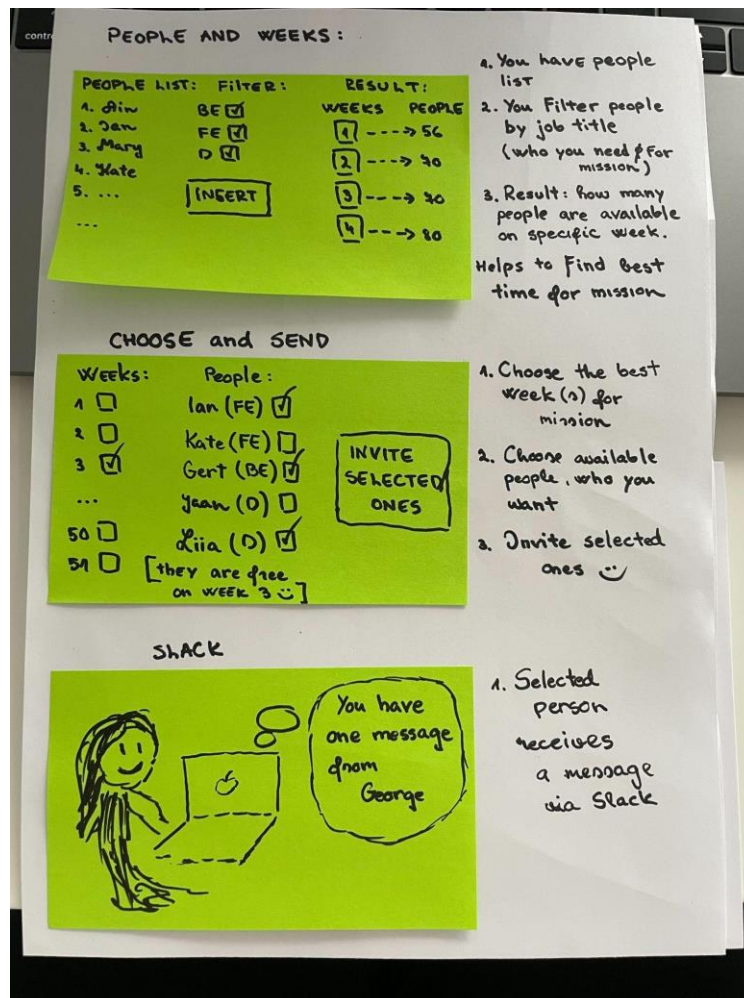 contr
PEOPLE AND WEEKS:
PEOPLE LIST: FILTER: RESULT:
1. Ain BE WEEKS PEOPLE
2. Jan FE 1 ---> 56
3. Mary D 2 ---> 70
4. Kate
5. ... INSERT 3 ---> 70
... 4 ---> 80
1. You have people
list
2. You Filter people
by job title
(who you need for
mission)
3. Result: how many
people are available
on specific week.
Helps to Find best
time for mission
CHOOSE and SEND
WEEKS: People:
1 Ian (FE)
2 Kate (FE)
3 Gert (BE)
... Jaan (D)
50 Liia (D)
51 [they are free
on WEEK 3 :)]
INVITE
SELECTED
ONES
1. Choose the best
week(s) for
mission
2. Choose available
people, who you
want
3. Invite selected
ones :)
SLACK
You have
one message
from
George
1. Selected
person
receives
a message
via Slack